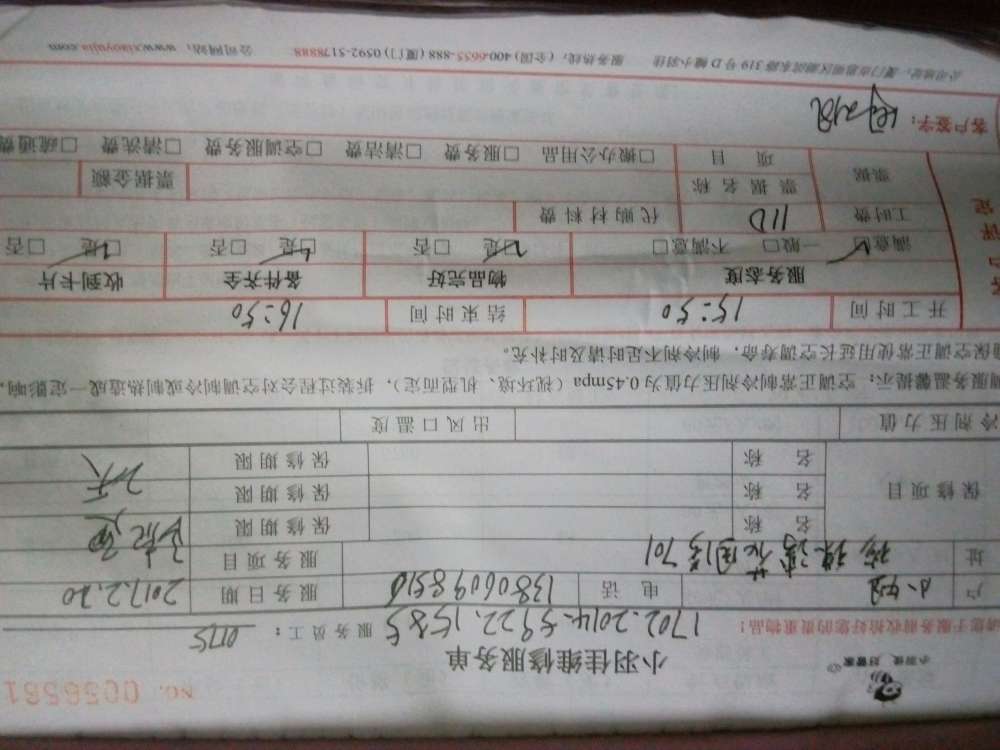 小羽佳 好管家
小羽佳维修服务单
NO. 0056561
请您于服务前收拾好您的贵重物品!
1702.2014.5922.1585
服务员工: 0775
户 小姐 电话 13806098510 服务日期 2017.2.20
址 花园 701 服务项目
保修项目 名称 保修期限
名称 保修期限
名称 保修期限
冷剂压力值 出风口温度
调服务温馨提示:空调正常制冷剂压力值为0.45mpa(视环境、机型而定),拆装过程会对空调制冷或制热造成一定影响,
确保空调正常使用延长空调寿命,制冷剂不足时请及时补充。
开工时间 15:50 结束时间 16:50
服务态度 物品完好 备件齐全 收到卡片
满意□ 一般□ 不满意□ □是 □否 □是 □否 □是 □否
工时费 110 代购材料费
票据 票据名称 票据金额
项目 □搬办公用品 □服务费 □清洁费 □空调服务费 □清洗费 □疏通费
客户签字:
公司地址:厦门市思明区湖滨东路319号D幢小羽佳 服务热线:(全国)400-6655-888 (厦门)0592-5178888 公司网站:www.xiaoyujia.com